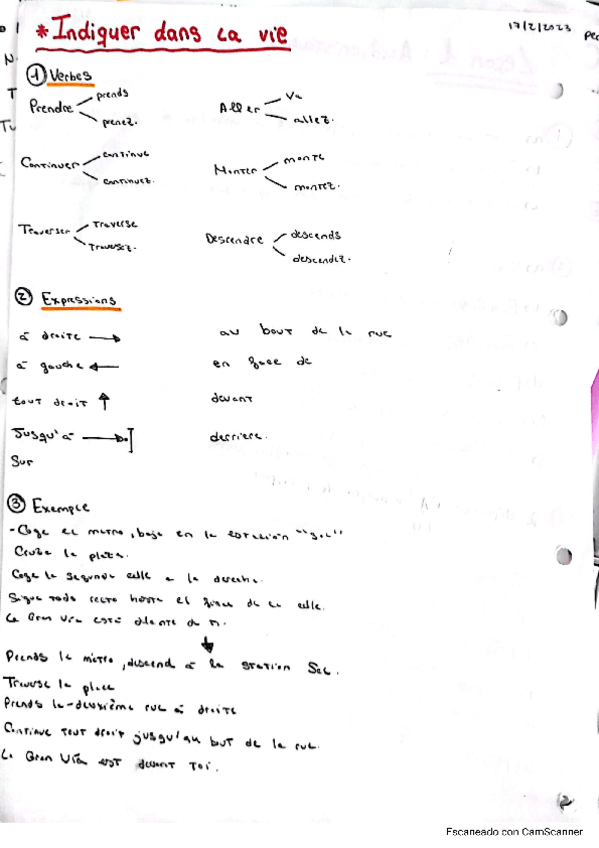 * Indiquer dans La vie
17/2/2023
1 Verbes
Prendre prends prenez.
Aller va allez.
Continuer continue continuez.
Monter monte montez.
Traverser Traverse Traversez.
Descendre descends descendez.
2 Expressions
à droite →
au bout de la rue
à gauche ←
en face de
tout droit ↑
devant
Jusqu'à
derriere.
Sur
3 Exemple
-Coge el metro, baja en la estación "sol"
Cruza la plaza.
Coge la segunda calle a la derecha.
Sigue todo recto hasta el final de la calle.
La Gran Vía está delante de ti.
Prends le métro, descend à la station Sol.
Traverse la place
Prends la deuxième rue à droite
Continue tout droit jusqu'au bout de la rue.
La Gran Vía est devant toi.
2
Escaneado con CamScanner